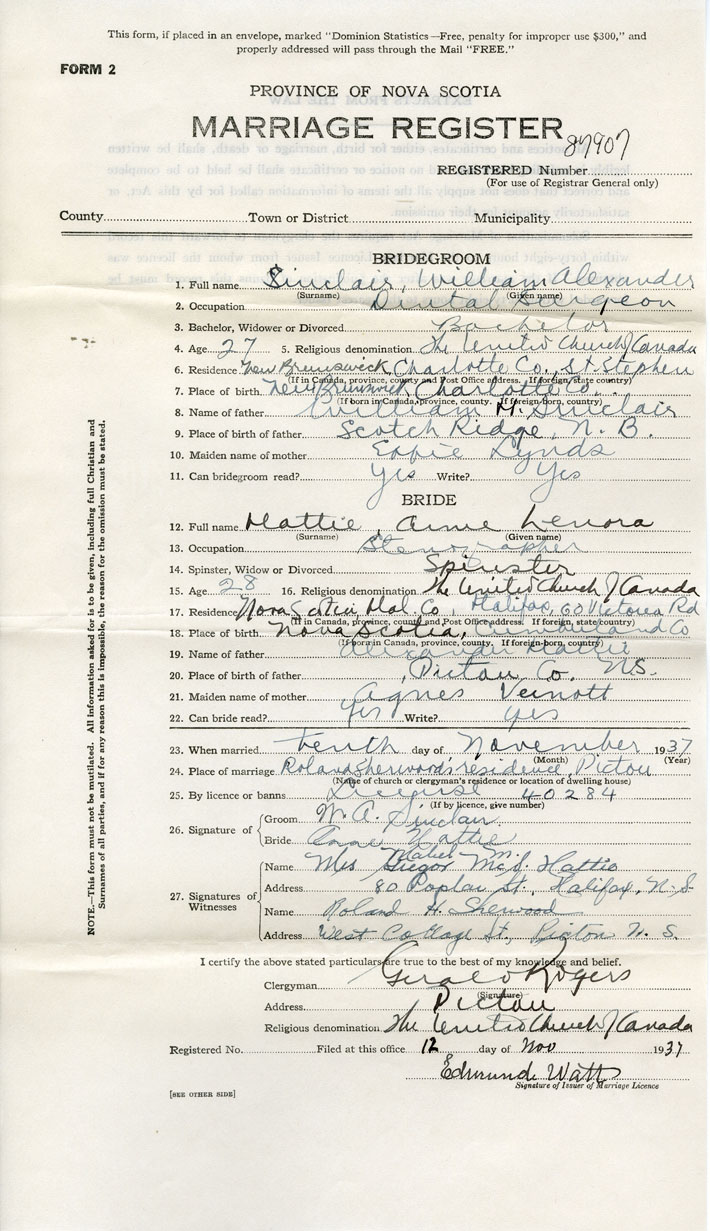 This form, if placed in an envelope, marked "Dominion Statistics—Free, penalty for improper use $300," and
properly addressed will pass through the Mail "FREE."
FORM 2
PROVINCE OF NOVA SCOTIA
MARRIAGE REGISTER
87907
REGISTERED Number
(For use of Registrar General only)
County Town or District Municipality
BRIDEGROOM
1. Full name Sinclair, William Alexander
(Surname) (Given name)
2. Occupation Dental Surgeon
3. Bachelor, Widower or Divorced Bachelor
4. Age 27 5. Religious denomination The United Church of Canada
6. Residence New Brunswick, Charlotte Co., St. Stephen
(If in Canada, province, county and Post Office address. If foreign, state country)
7. Place of birth New Brunswick, Charlotte Co.
(If born in Canada, province, county. If foreign-born, country)
8. Name of father William H. Sinclair
9. Place of birth of father Scotch Ridge, N. B.
10. Maiden name of mother Effie Lynds
11. Can bridegroom read? Yes Write? Yes
BRIDE
12. Full name Hattie, Anne Lenora
(Surname) (Given name)
13. Occupation Stenographer
14. Spinster, Widow or Divorced Spinster
15. Age 28 16. Religious denomination The United Church of Canada
17. Residence Nova Scotia Hal. Co., Halifax, 60 Victoria Rd
(If in Canada, province, county and Post Office address. If foreign, state country)
18. Place of birth Nova Scotia, Cumberland Co
(If born in Canada, province, county. If foreign-born, country)
19. Name of father Alexander Hattie
20. Place of birth of father Pictou Co. N.S.
21. Maiden name of mother Agnes Veinott
22. Can bride read? Yes Write? Yes
23. When married tenth day of November 1937
(Month) (Year)
24. Place of marriage Roland Sherwood's residence, Pictou
(Name of church or clergyman's residence or location of dwelling house)
25. By licence or banns License 40284
(If by licence, give number)
26. Signature of Groom W. A. Sinclair
Bride Anne Hattie
27. Signatures of Witnesses
Name Mrs Hattie
Address 80 Poplar St., Halifax, N.S.
Name Roland H. Sherwood
Address West Cottage St., Pictou N. S.
I certify the above stated particulars are true to the best of my knowledge and belief.
Clergyman Gerald Rogers
(Signature)
Address Pictou
Religious denomination The United Church of Canada
Registered No. Filed at this office 12 day of Nov 1937
Edmund Watt
Signature of Issuer of Marriage Licence
[SEE OTHER SIDE]
NOTE.—This form must not be mutilated. All information asked for is to be given, including full Christian and
Surnames of all parties, and if for any reason this is impossible, the reason for the omission must be stated.